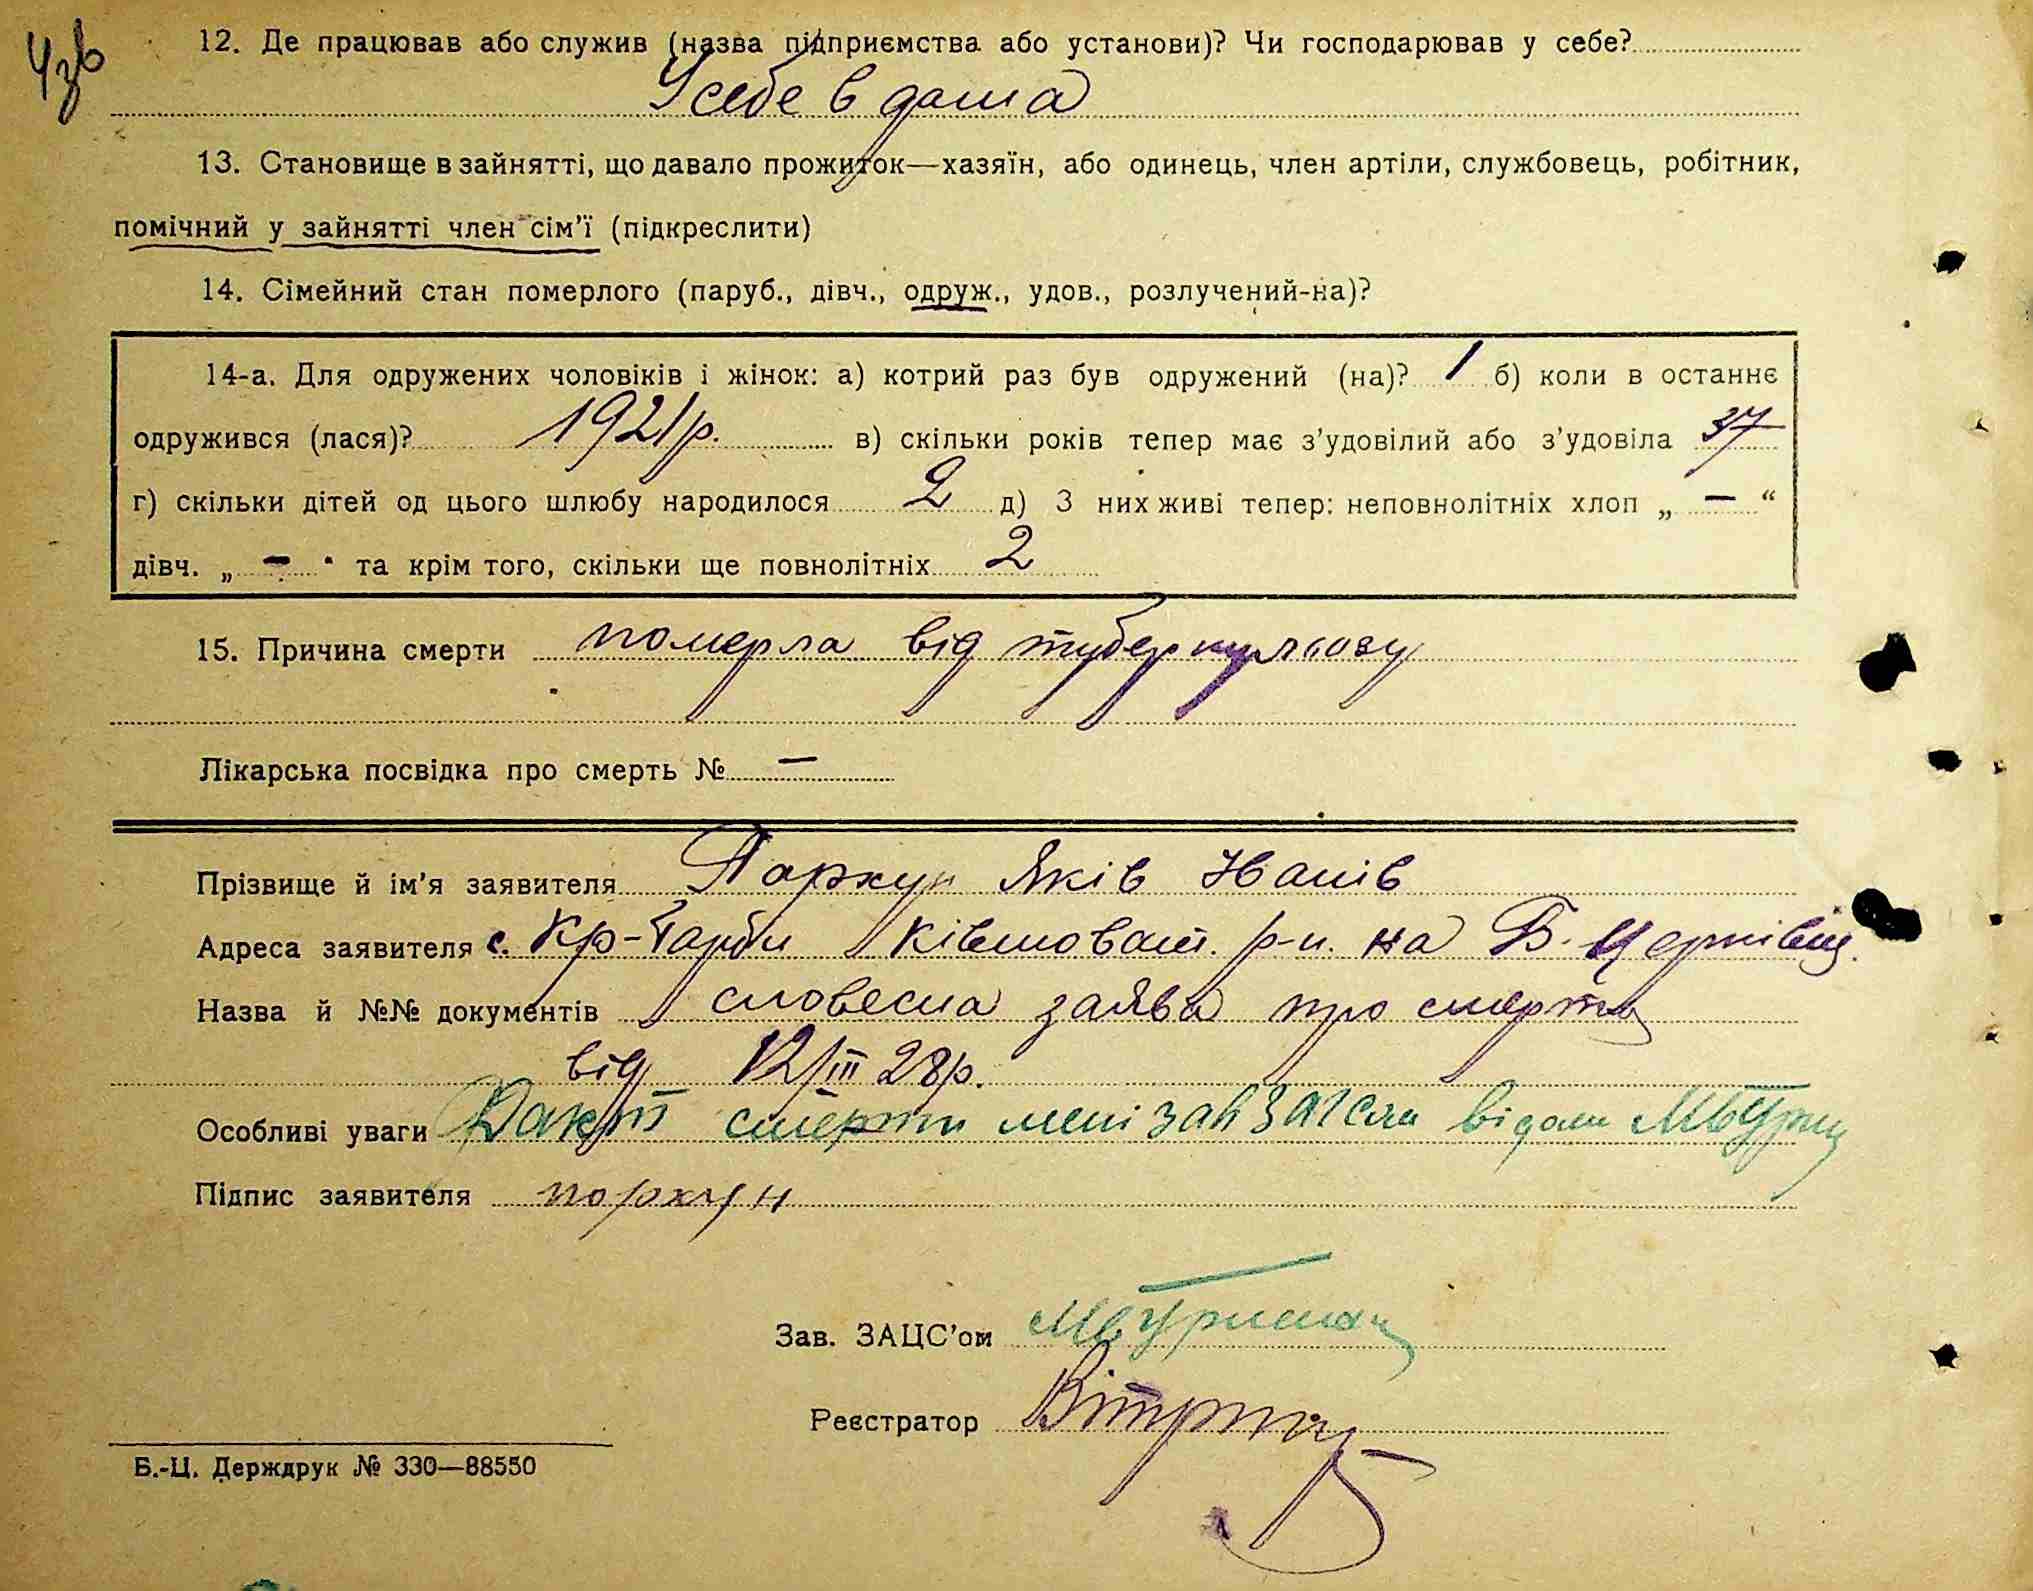 12. Де працював або служив (назва підприємства або установи)? Чи господарював у себе?
У себе в дома
13. Становище в зайнятті, що давало прожиток—хазяїн, або одинець, член артіли, службовець, робітник,
помічний у зайнятті член сім'ї (підкреслити)
14. Сімейний стан померлого (паруб., дівч., одруж., удов., розлучений-на)?
14-а. Для одружених чоловіків і жінок: а) котрий раз був одружений (на)? 1 б) коли в останнє
одружився (лася)? 1921 р. в) скільки років тепер має з'удовілий або з'удовіла 37
г) скільки дітей од цього шлюбу народилося 2 д) З них живі тепер: неповнолітніх хлоп „ — “
дівч. „ — “ та крім того, скільки ще повнолітніх 2
15. Причина смерти померла від туберкульозу
Лікарська посвідка про смерть № —
Прізвище й ім'я заявителя Пархун Яків Іванів
Адреса заявителя с. р-н. на Б. Церківщ.
Назва й №№ документів словесна заява про смерть
від 12/III 28р.
Особливі уваги Факт смерти мені зав ЗАГСом відом
Підпис заявителя пархун
Зав. ЗАЦС'ом
Реєстратор
Б.-Ц. Держдрук № 330—88550